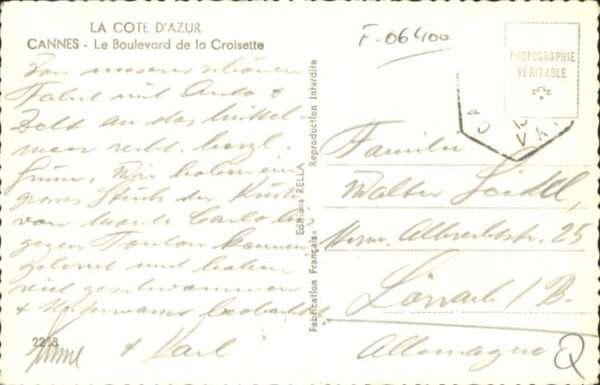 LA COTE D'AZUR
CANNES - Le Boulevard de la Croisette
F-06400
PHOTOGRAPHIE
VÉRITABLE
Von unserer schönen
Fahrt mit Auto &
Zelt an das Mittel-
meer recht herzl.
Wir haben ein
grosses Stück der Küste
von Monte Carlo bis
gegen Toulon kennen
gelernt und haben
viel geschwommen
&
& Karl
2268
Editions RELLA
Fabrication Française - Reproduction Interdite
Familie
Walter
Herm. Albrechtstr. 25
Lörrach / B.
Allemagne
Q